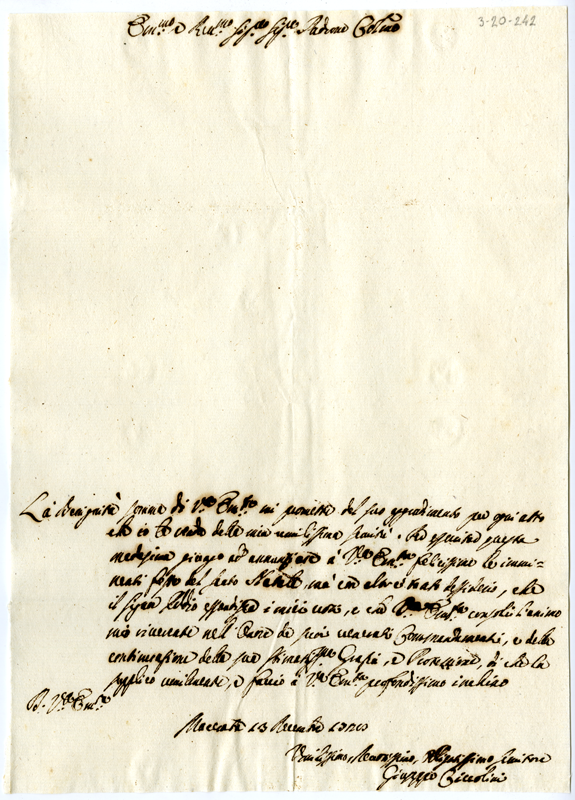 3-20-242
Em.mo e Rev.mo Sig.re Sig.re Padrone Col.mo
La benignità somma di V.ra Em.za mi promette del suo aggradimento per ogni atto
che io le renda della mia umilissima servitù. Ed essendo questa
medesima giunge ad annunziare à V.ra Em.za felicissime le immi-
nenti feste del Santo Natale, mà con altrettanto desiderio, che
il Sig.re Iddio esaudisca i miei voti, e che V.ra Em.za consoli l'animo
mio riverente nell' onore de suoi venerati Commandamenti, e della
continuazione della sua stimatiss.ma Grazia, e Protezzione, di che la
supplico umilmente, e faccio à V.ra Em.za profondissimo inchino
D. V.ra Em.za
Macerata 13 Decembre
Umilissimo, Devotissimo, Obligatissimo Servitore
Giuseppe Ciccolini